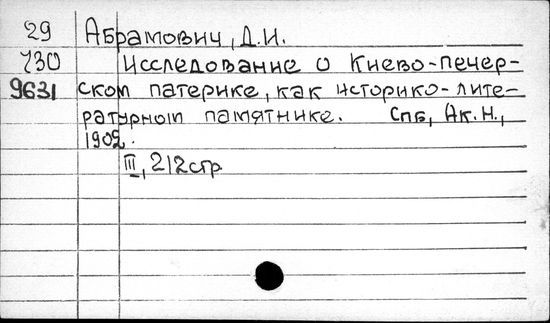 29 Абрамович, Д.И.
730 Исследование о Киево-печер-
9631 ском патерике, как историко-лите-
ратурном памятнике. Спб, Ак.Н.,
1902.
III, 212стр